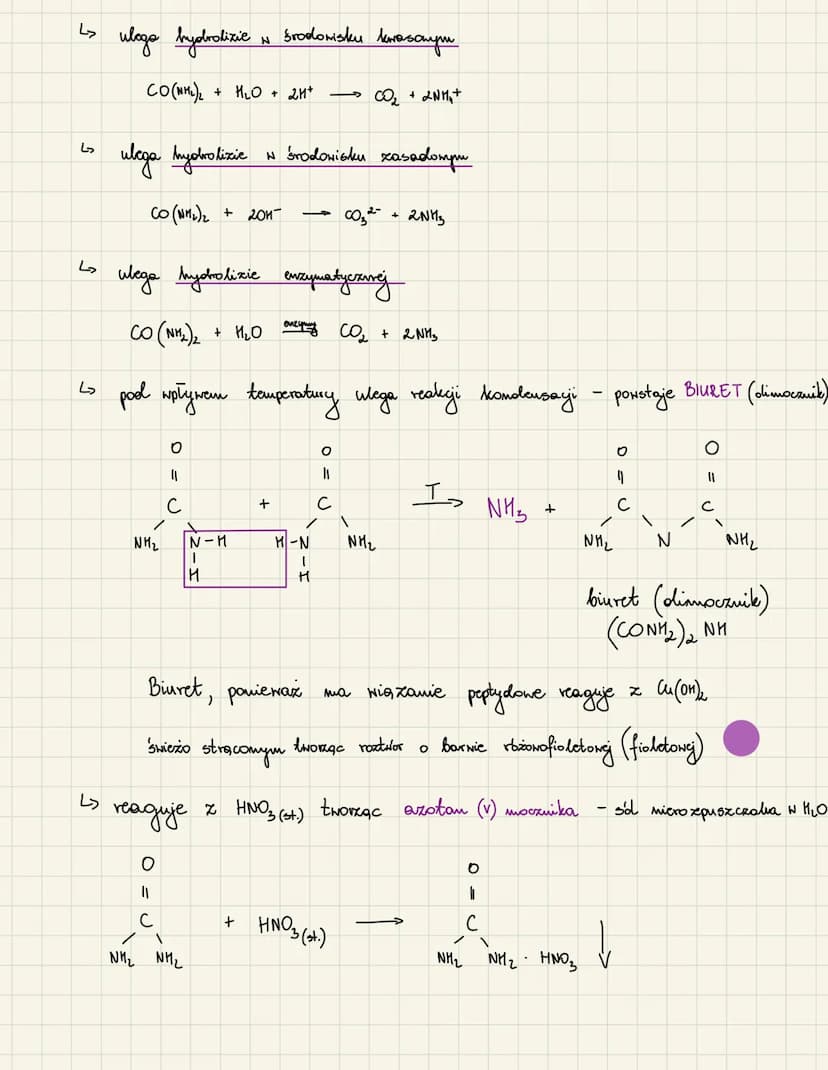 ↳ ulega hydrolizie w środowisku kwasowym
CO(NH₂)₂ + H₂O + 2H⁺ ⟶ CO₂ + 2NH₄⁺
↳ ulega hydrolizie w środowisku zasadowym
CO(NH₂)₂ + 2OH⁻ ⟶ CO₃²⁻ + 2NH₃
↳ ulega hydrolizie enzymatycznej
CO(NH₂)₂ + H₂O enzymy ⟶ CO₂ + 2NH₃
↳ pod wpływem temperatury ulega reakcji kondensacji – powstaje BIURET (dimocznik)
O O O O
|| || || ||
C + C T⟶ NH₃ + C C
NH₂ N-H H-N NH₂ NH₂ N NH₂
H H
biuret (dimocznik)
(CONH₂)₂ NH
Biuret, ponieważ ma wiązanie peptydowe reaguje z Cu(OH)₂
świeżo strąconym tworząc roztwór o barwie różowofioletowej (fioletowej)
↳ reaguje z HNO₃(st.) tworząc azotan (V) mocznika – sól nierozpuszczalna w H₂O
O O
|| ||
C + HNO₃(st.) ⟶ C
NH₂ NH₂ NH₂ NH₂ · HNO₃ ↓